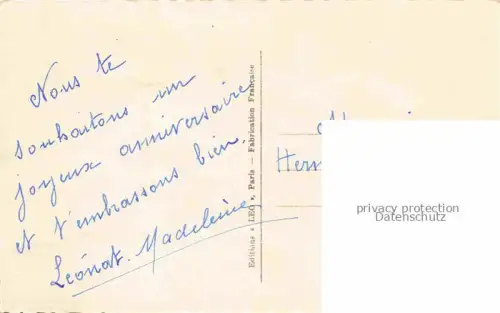 Nous te
souhaitons un
joyeux anniversaire
et t'embrassons bien.
Léonat. Madeleine
Editions « LEO », Paris — Fabrication Française
Hern
privacy protection
Datenschutz